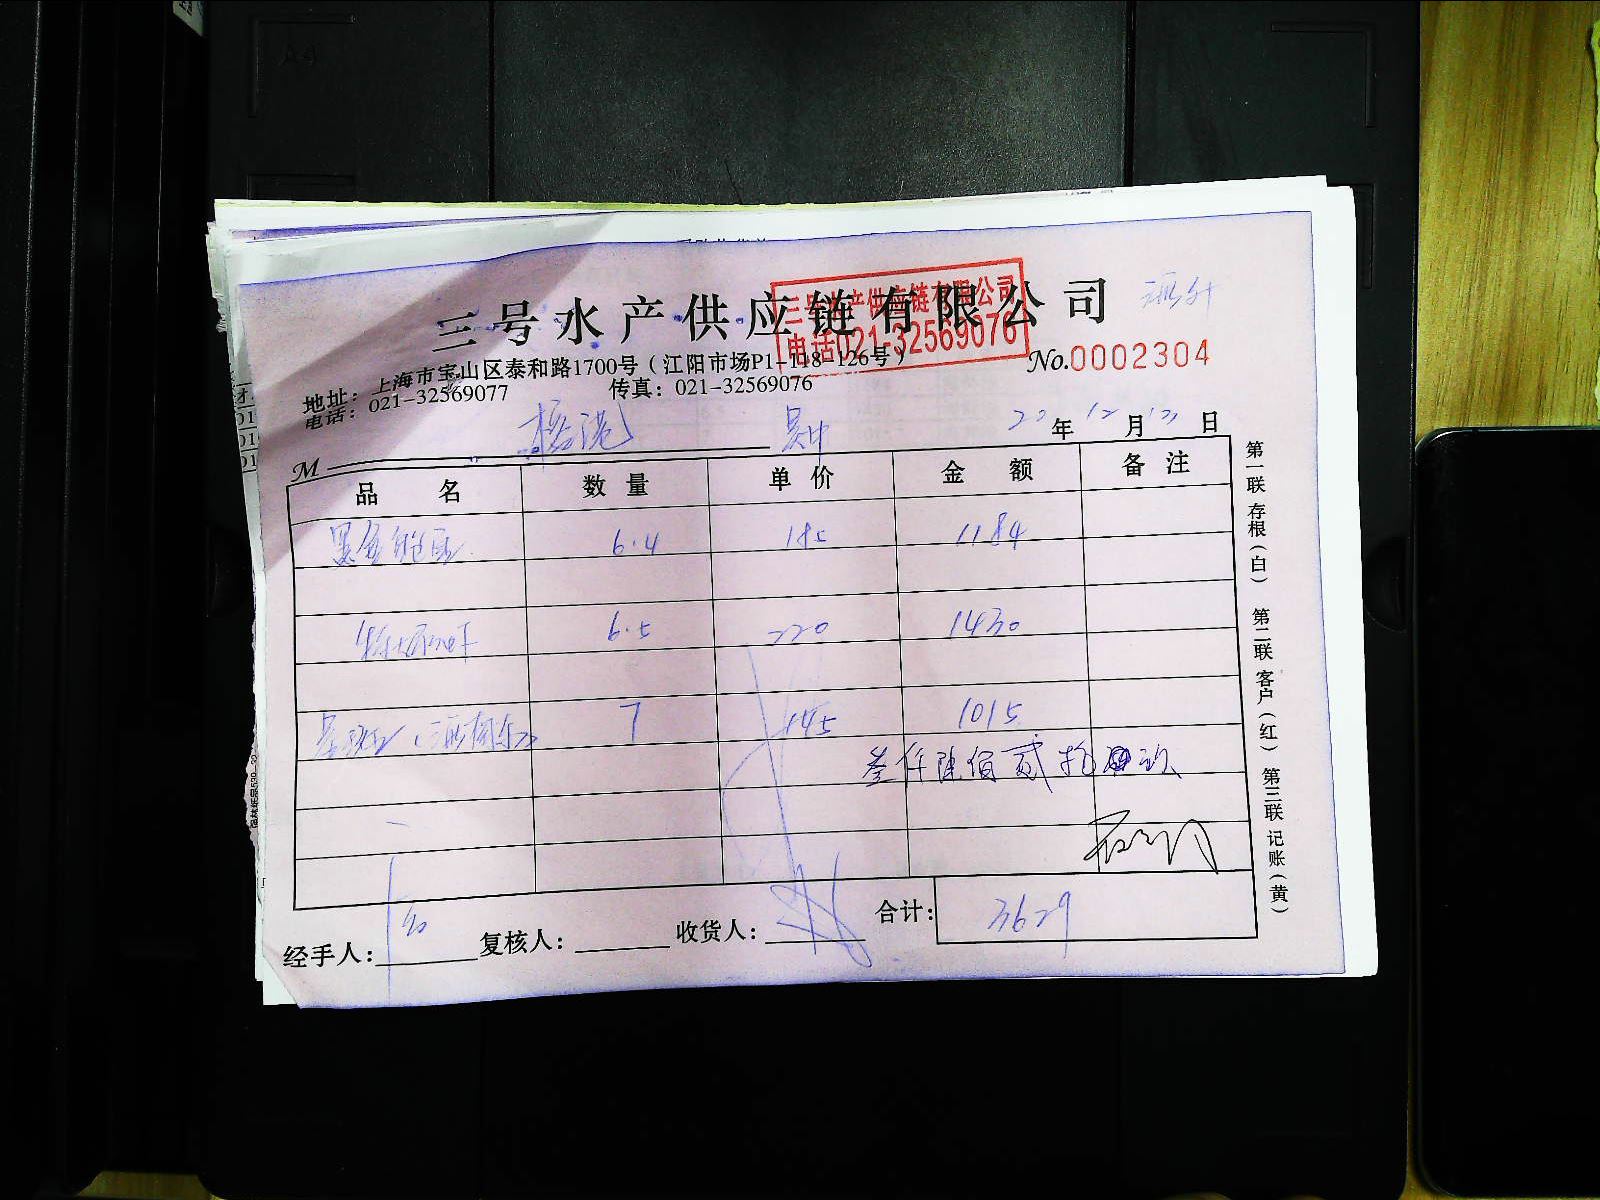 三号水产供应链有限公司
三号水产供应链有限公司
电话021-32569076
No.0002304
地址：上海市宝山区泰和路1700号（江阳市场P1-118-126号）
电话：021-32569077 传真：021-32569076
M 年 12月 日
品名 数量 单价 金额 备注
6.4 185 1184
6.5 220 1430
7 145 1015
叁仟陆佰贰拾玖
合计：3629
经手人： 复核人： 收货人：
第一联 存根（白） 第二联 客户（红） 第三联 记账（黄）
A4